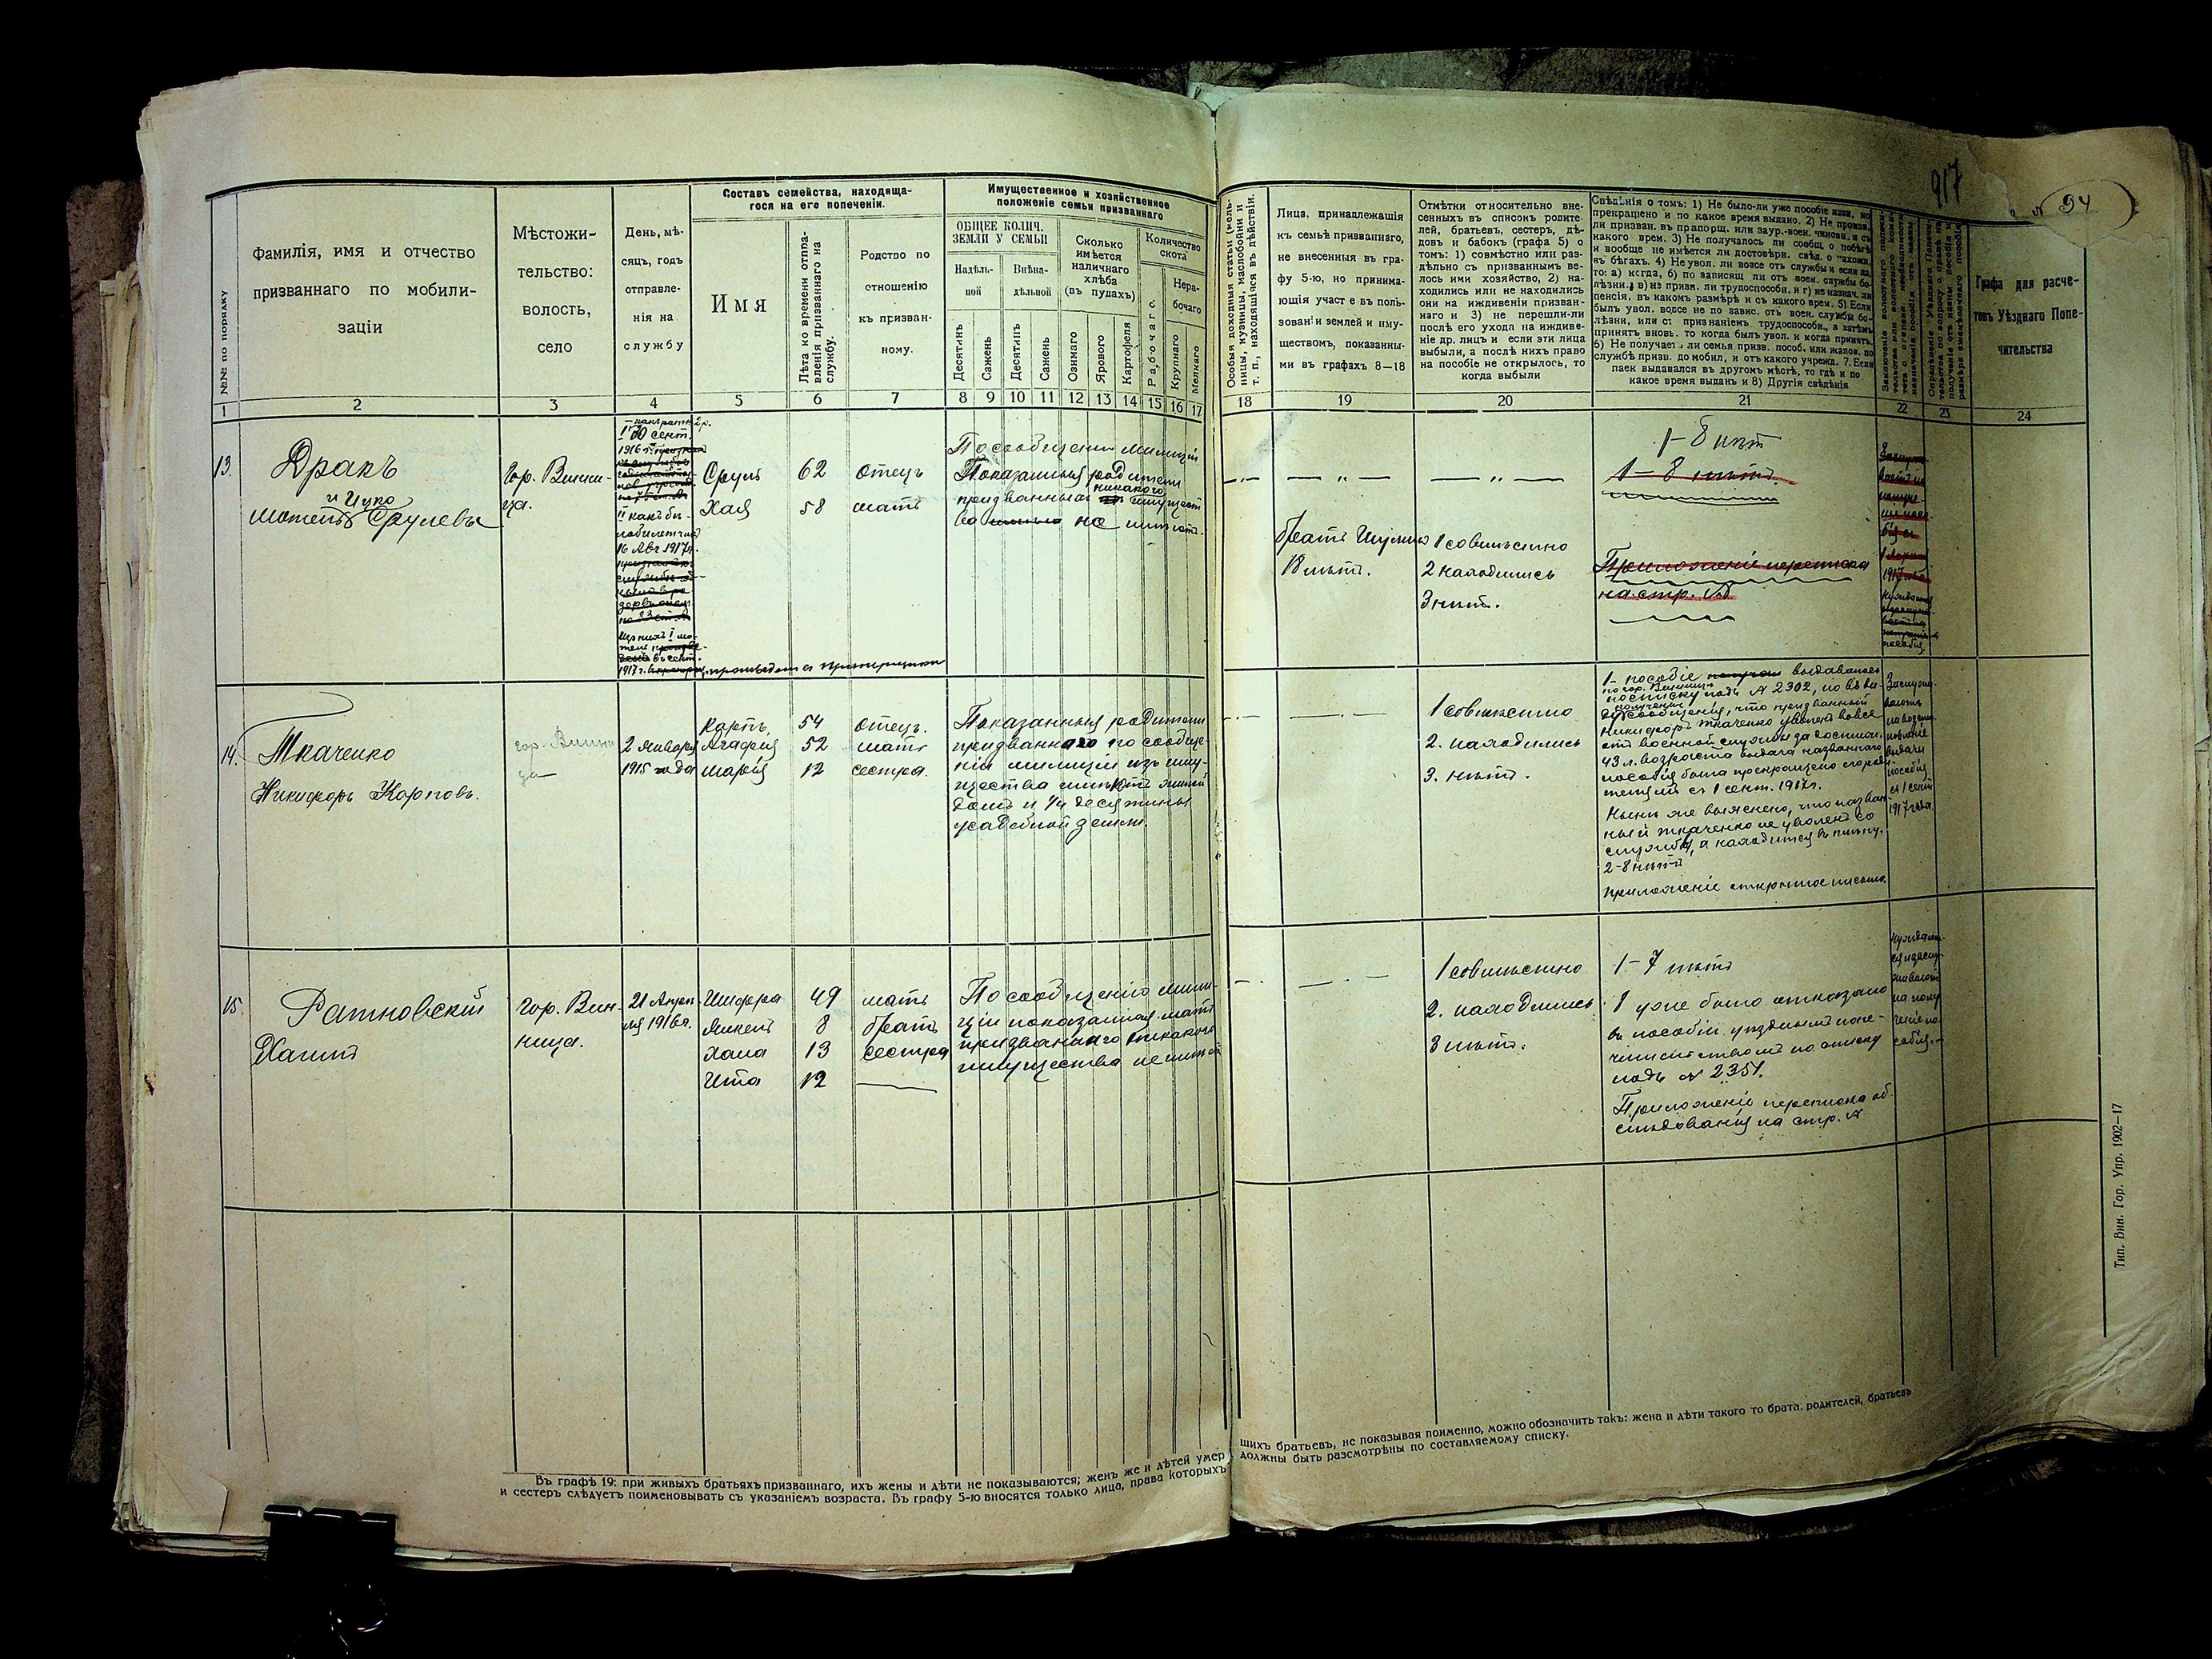 917
94
№№ по порядку
Фамилія, имя и отчество
призваннаго по мобили-
заціи
Мѣстожи-
тельство:
волость,
село
День, мѣ-
сяцъ, годъ
отправле-
нія на
службу
Составъ семейства, находяща-
гося на его попеченіи.
Имя
Лѣта ко времени отпра-
вленія призваннаго на
службу.
Родство по
отношенію
къ призван-
ному.
Имущественное и хозяйственное
положеніе семьи призваннаго
ОБЩЕЕ КОЛИЧ.
ЗЕМЛИ У СЕМЬИ
Надѣль-
ной
Внѣна-
дѣльной
Сколько
имѣется
наличнаго
хлѣба
(въ пудахъ)
Количество
скота
Нера-
бочаго
Десятинъ
Сажень
Десятинъ
Сажень
Озимаго
Ярового
Картофеля
Рабочаго
Крупнаго
Мелкаго
Особыя доходныя статьи (мель-
ницы, кузницы, маслобойни и
т. п., находящіяся въ дѣйствіи.
Лица, принадлежащія
къ семьѣ призваннаго,
не внесенныя въ гра-
фу 5-ю, но принима-
ющія участ е въ поль-
зовані и землей и иму-
ществомъ, показанны-
ми въ графахъ 8—18
Отмѣтки относительно вне-
сенныхъ въ списокъ родите-
лей, братьевъ, сестеръ, дѣ-
довъ и бабокъ (графа 5) о
томъ: 1) совмѣстно или раз-
дѣльно съ призваннымъ ве-
лось ими хозяйство, 2) на-
ходились или не находились
они на иждивеніи призван-
наго и 3) не перешли-ли
послѣ его ухода на иждиве-
ніе др. лицъ и если эти лица
выбыли, а послѣ нихъ право
на пособіе не открылось, то
когда выбыли
Свѣдѣнія о томъ: 1) Не было-ли уже пособіе назн, но
прекращено и по какое время выдано. 2) Не произв.
ли призван. въ прапорщ. или заур.-воен. чиновн. и съ
какого врем. 3) Не получалось ли сообщ. о побѣгѣ
и вообще не имѣется ли достовѣрн. свѣд. о нахожд.
въ бѣгахъ. 4) Не увол. ли вовсе отъ службы и если да,
то: а) когда, б) по зависящ ли отъ воен. службы бо-
лѣзни, в) не призн. ли трудоспособн. и г) не назнач. ли
пенсія, въ какомъ размѣрѣ и съ какого врем. 5) Если
былъ увол. вовсе не по завис. отъ воен. службы бо-
лѣзни, или съ признаніемъ трудоспособн., а затѣмъ
принятъ вновь. то когда былъ увол. и когда принятъ.
6) Не получает ли семья призв. пособ. или жалов. по
службѣ призв. до мобил, и отъ какого учрежд. 7. Если
паек выдавался въ другомъ мѣстѣ, то гдѣ и по
какое время выданъ и 8) Другія свѣдѣнія
Графа для расче-
товъ Уѣзднаго Попе-
чительства
1 2 3 4 5 6 7 8 9 10 11 12 13 14 15 16 17 18 19 20 21 22 23 24
13.
Дракъ
и Ицко
Мотель Срулевы
Гор. Винни-
ца.
10 сент.
1916 г.
II какъ би-
16 Авг 1917г.
Сруль 62 отецъ
Хая 58 мать
По сообщенію милиціи
Показанныя родители
призванныхъ никакого имущест
ва не имѣютъ.
братъ
18 лѣтъ.
1 совмѣстно
2 находились
3 нѣтъ.
1—8 нѣтъ
1—8 нѣтъ.
Приложеніе переписка
на стр.
14.
Ткаченко
Никифоръ Карповъ.
гор. Винни
ца
2 января
1915 года
Карпъ 54 отецъ.
Агафія 52 мать
Марія 12 сестра.
Показанныя родители
призваннаго по сообще-
нію милиціи изъ иму-
щества имѣютъ жилой
домъ и 1/4 десятины
усадебной земли.
1 совмѣстно
2. находились
3. нѣтъ.
1— пособіе выдавалось
по гор. Винницѣ
по списку подъ № 2302, но въ ви-
ду полученія сообщенія, что призванный
Никифоръ Ткаченко уволенъ вовсе
отъ военной службы за достиж.
43 л. возраста выдача названнаго
пособія была прекращена
с 1 сент. 1917г.
Нынѣ же выяснено, что назван
ный Ткаченко не уволенъ со
службы, а находится въ плѣну.
2-8 нѣтъ
Приложеніе открытое письмо.
съ 1 сент
1917 года.
15.
Ратновскій
Хаимъ
Гор. Вин-
ница.
21 Апрѣ-
ля 1916г.
Шифра 49 мать
8 братъ
Хана 13 сестра
Ита 12 —
По сообщенію мили-
ціи показанная мать
призваннаго никакого
имущества не имѣетъ
1 совмѣстно
2. находились
3 нѣтъ.
1—7 нѣтъ
8 уже было отказано
въ пособіи уѣзднымъ попе-
чительствомъ по списку
подъ № 2351.
Приложеніе переписка об-
слѣдованія на стр. №
Въ графѣ 19: при живыхъ братьяхъ призваннаго, ихъ жены и дѣти не показываются; женъ же и дѣтей умер
шихъ братьевъ, не показывая поименно, можно обозначить такъ: жена и дѣти такого то брата, родителей, братьевъ
и сестеръ слѣдуетъ поименовывать съ указаніемъ возраста. Въ графу 5-ю вносятся только лица, права которыхъ
должны быть разсмотрѣны по составляемому списку.
Тип. Винн. Гор. Упр. 1902—17